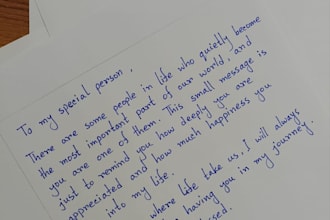 To my special person,
There are some people in life who quietly become
the most important part of our world, and
you are one of them. This small message is
just to remind you how deeply you are
appreciated and how much happiness you
into my life.
where life take us, I will always
having you in my journey.